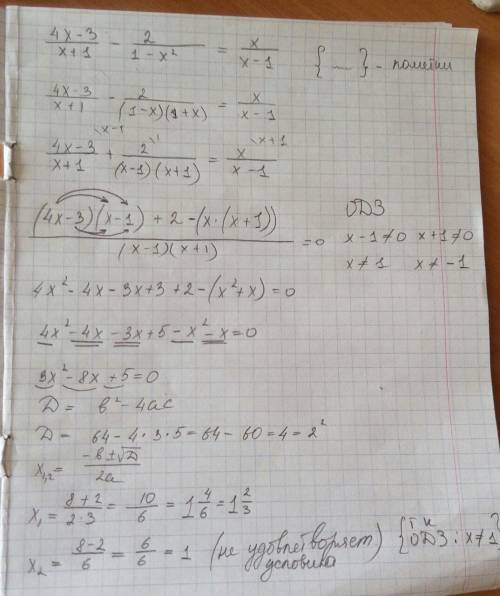 (4x-3)/(x+1) - 2/(1-x²) = x/(x-1)
{ — } - пометки
(4x-3)/(x+1) - 2/((1-x)(1+x)) = x/(x-1)
(4x-3)/(x+1) \x-1 + 2/((x-1)(x+1)) \1 = x/(x-1) \x+1
((4x-3)(x-1) + 2 - (x·(x+1)))/((x-1)(x+1)) = 0
ОДЗ
x-1≠0 x+1≠0
x≠1 x≠-1
4x² - 4x - 3x + 3 + 2 - (x²+x) = 0
4x² - 4x - 3x + 5 - x² - x = 0
3x² - 8x + 5 = 0
D = b² - 4ac
D = 64 - 4·3·5 = 64 - 60 = 4 = 2²
x₁,₂ = (-b±√D)/2a
x₁ = (8+2)/(2·3) = 10/6 = 1 4/6 = 1 2/3
x₂ = (8-2)/6 = 6/6 = 1 (не удовлетворяет условиям) {т к ОДЗ: x≠1}